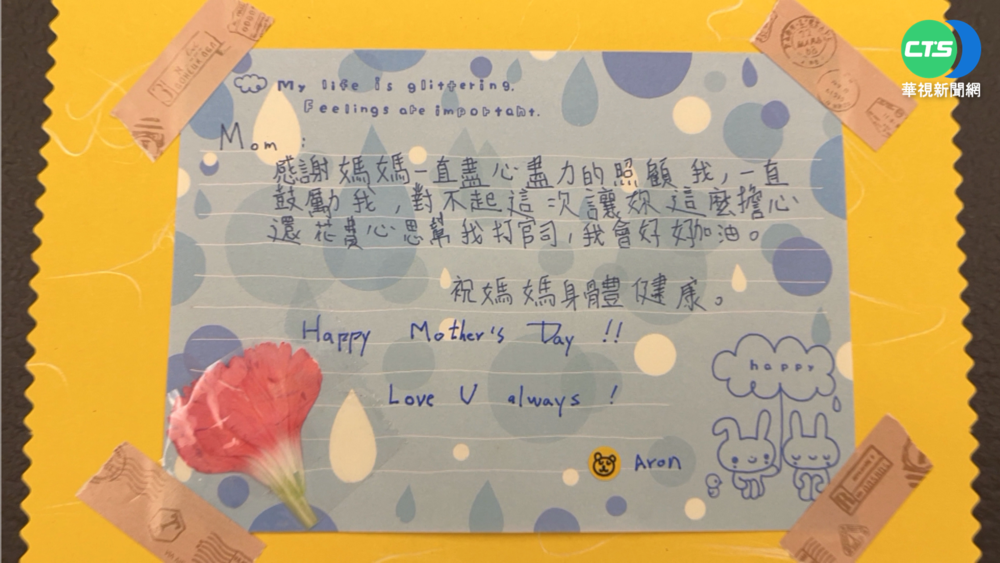 CTS
華視新聞網
My life is glittering.
Feelings are important.
Mom :
感謝媽媽一直盡心盡力的照顧我，一直
鼓勵我，對不起這次讓妳這麼擔心
還花費心思幫我打官司，我會好好加油。
祝媽媽身體健康。
Happy Mother's Day !!
Love U always !
Aron
happy